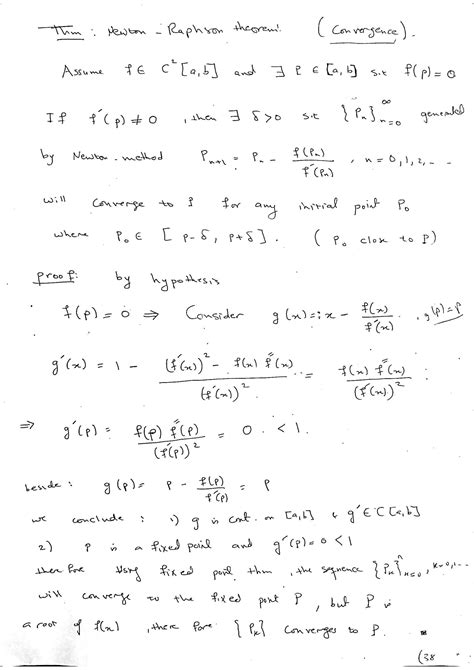 Thm : Newton - Raphson theorem: (Convergence).
Assume f ∈ C²[a,b] and ∃ P ∈ [a,b] s.t f(p) = 0
If f'(p) ≠ 0 , then ∃ δ > 0 s.t {Pn}∞n=0 generated
by Newton-method Pn+1 = Pn - f(Pn)/f'(Pn) , n = 0,1,2,...
will converge to P for any initial point P0
where P0 ∈ [ p-δ, p+δ ]. ( P0 close to P)
proof: by hypothesis
f(p) = 0 ⇒ Consider g(x) =: x - f(x)/f'(x) , g(p)=p
g'(x) = 1 - ((f'(x))² - f(x) f''(x))/(f'(x))² = f(x) f''(x)/(f'(x))²
⇒ g'(p) = f(p) f''(p)/(f'(p))² = 0 < 1.
beside : g(p) = p - f(p)/f'(p) = p
we conclude : 1) g is cont. on [a,b] & g' ∈ C[a,b]
2) P is a fixed point and g'(p) = 0 < 1
therefore Using fixed point thm , the sequence {Pk}n=0, k=0,1,...
will converge to the fixed point P , but P is
a root of f(x) , therefore {Pk} converges to P.
(38